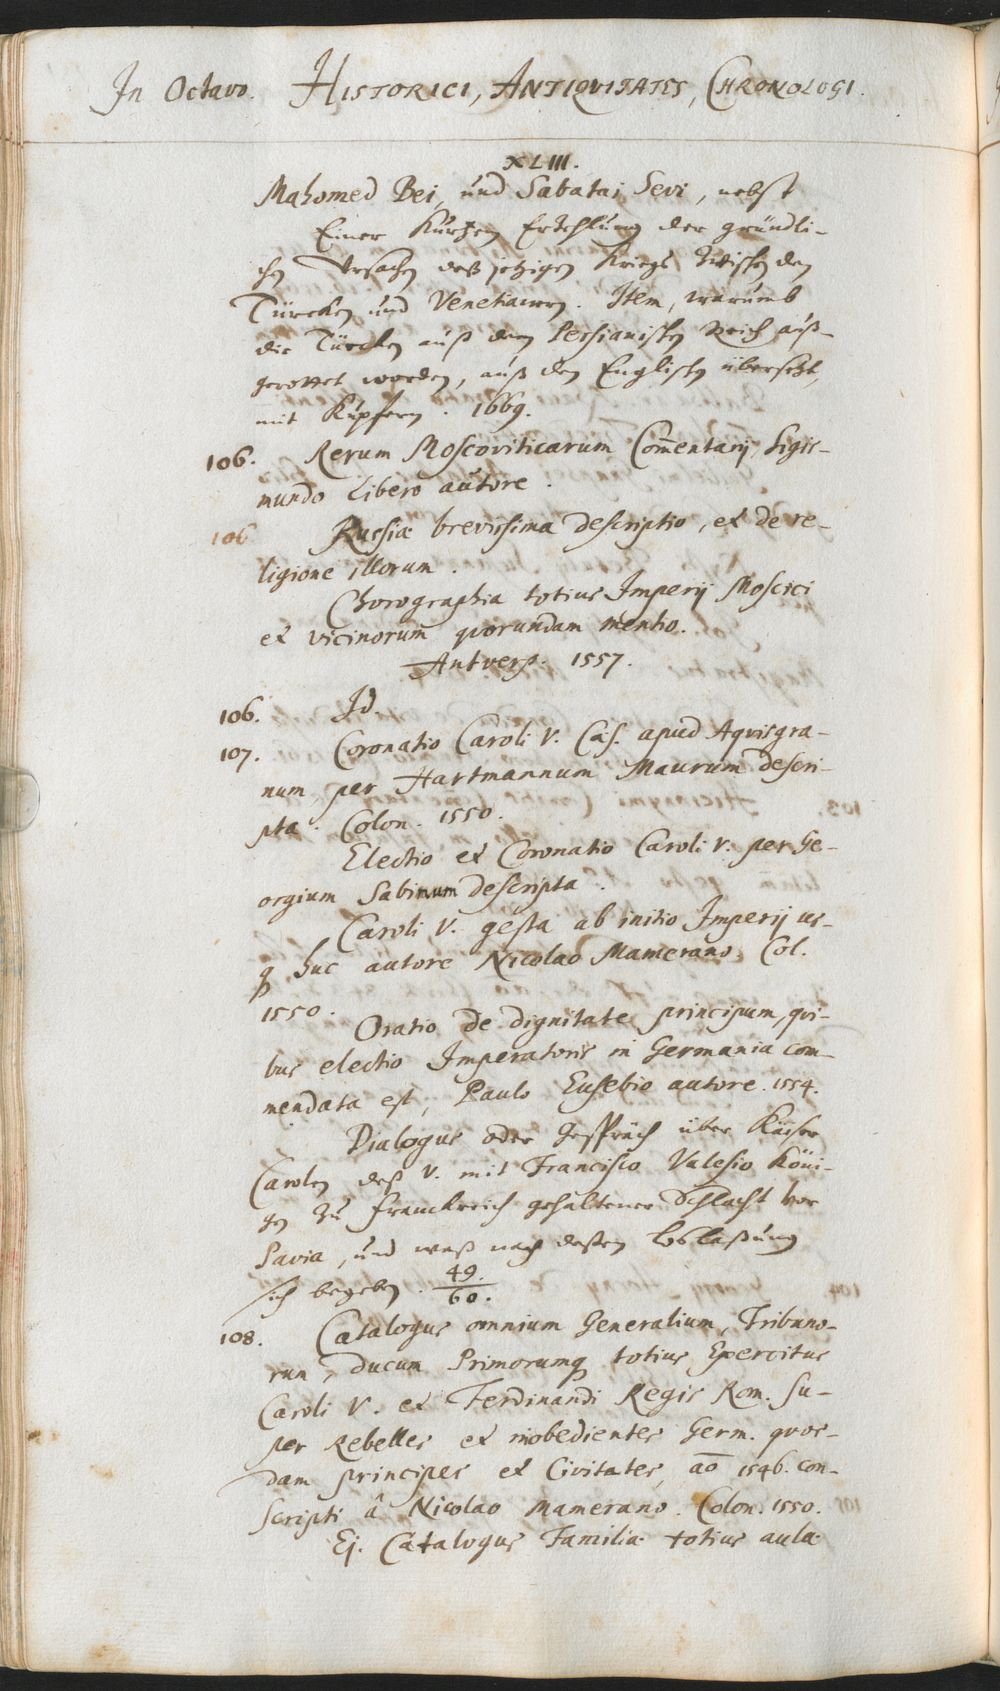 In Octavo. HISTORICI, ANTIQVITATES, CHRONOLOGI.
XLIII.
Mahomed Bei, und Sabatai Sevi, nebst
Einer Kurtzen Erzehlung der gründli-
chen Ursachen deß jetzigen Kriegs Zwischen den
Türcken und Venetianern. Item, warumb
die Türcken auß dem Persianischen Reich auß-
gerottet worden, auß dem Englischen übersetzt,
mit Kupfern. 1669.
106. Rerum Moscoviticarum Com̄entarij Sigis-
mundo Libero autore.
106 Russiæ brevissima descriptio, et de re-
ligione illorum.
Chorographia totius Imperij Moscici
et vicinorum quorundam mentio.
Antverp. 1557.
106. Id.
107. Coronatio Caroli V. Cæs. apud Aquisgra-
num, per Hartmannum Maurum descri-
pta. Colon. 1550.
Electio et Coronatio Caroli V. per Ge-
orgium Sabinum descripta.
Caroli V. gesta ab initio Imperij us-
q huc autore Nicolao Mamerano. Col.
1550.
Oratio de dignitate principum, qui-
bus electio Imperatoris in Germania com-
mendata est, Paulo Eusebio autore. 1554.
Dialogus oder Gespräch über Kaiser
Carolen deß V. mit Francisco Valesio Köni-
gen Zu Franckreich gehaltener Schlacht vor
Pavia, und waß nach dessen Loßlaßung
sich begeben. 49.
60.
108. Catalogus omnium Generalium, Tribuno-
rum, ducum Primorumq totius Exercitus
Caroli V. et Ferdinandi Regis Rom. Su-
per Rebelles et inobedientes Germ. quos-
dam principes et Civitates, aō 1546. con-
scripti â Nicolao Mamerano. Colon. 1550.
Ej. Catalogus Familiæ totius aulæ